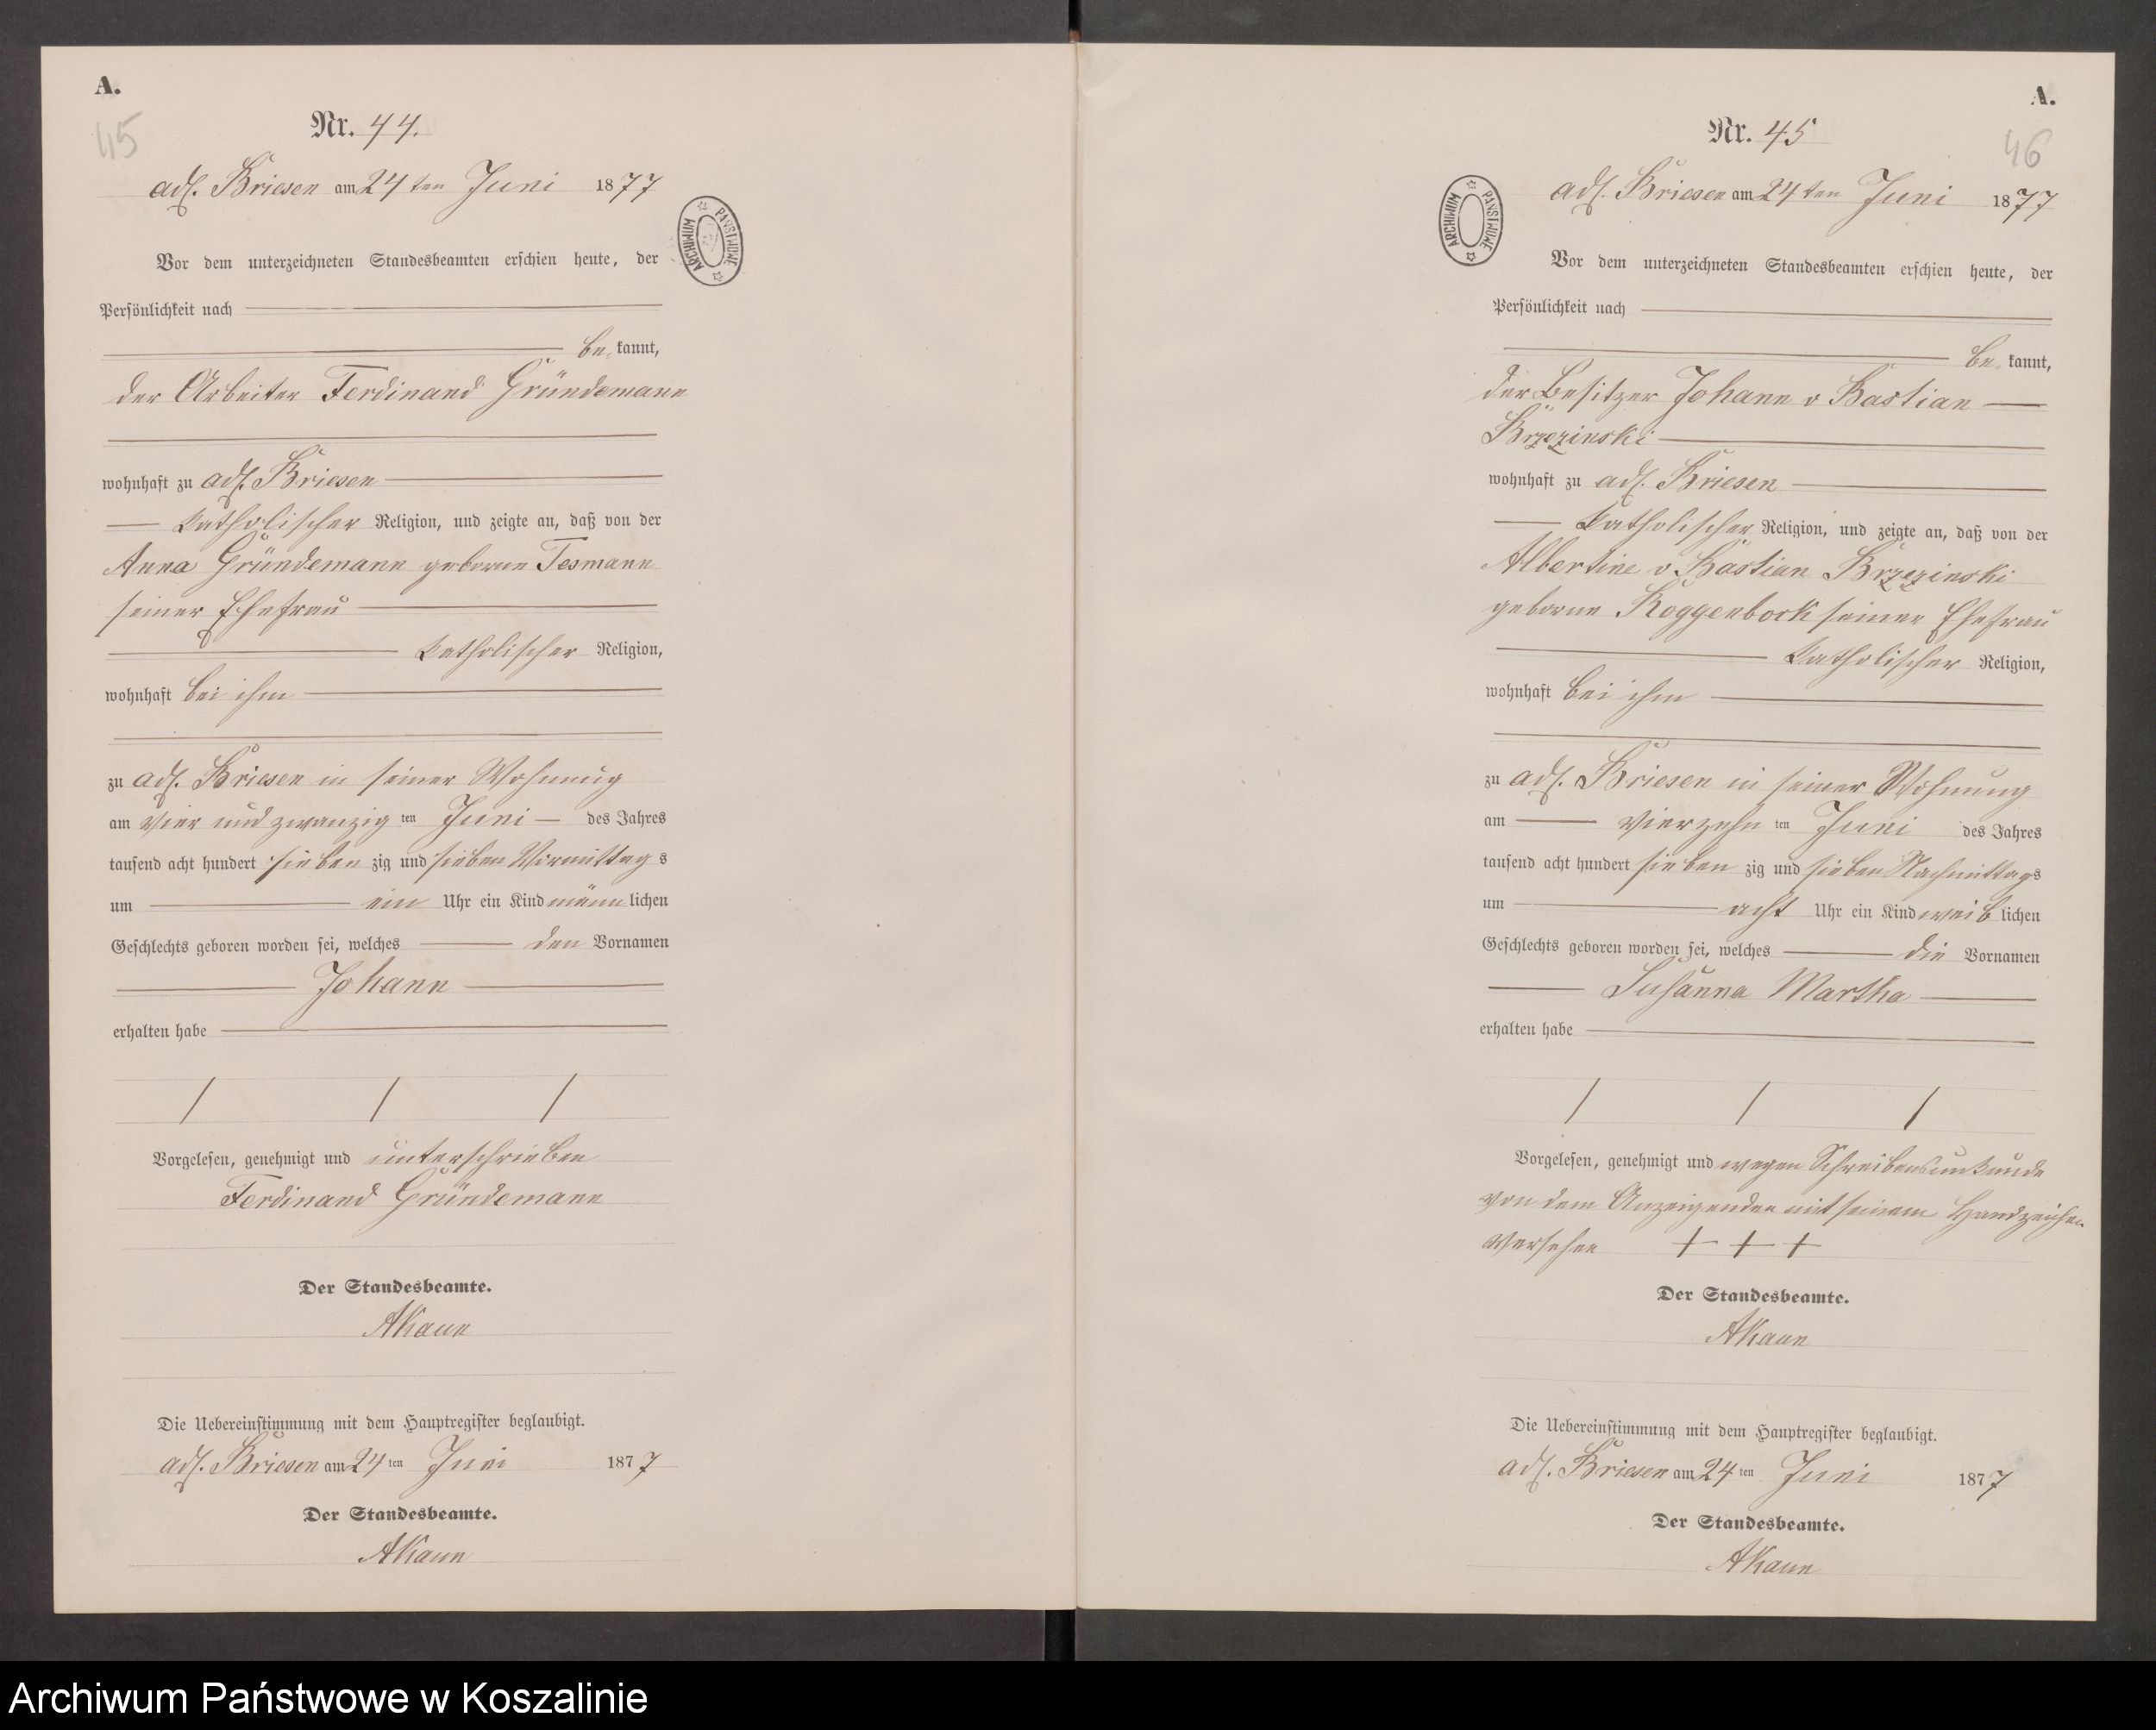 A.
45
Nr. 44.
adl. Briesen am 24 ten Juni 1877
Vor dem unterzeichneten Standesbeamten erschien heute, der
Persönlichkeit nach
be kannt,
der Arbeiter Ferdinand Gründemann
wohnhaft zu adl. Briesen
katholischer Religion, und zeigte an, daß von der
Anna Gründemann geborne Tesmann
seiner Ehefrau
katholischer Religion,
wohnhaft bei ihm
zu adl. Briesen in seiner Wohnung
am vier und zwanzig ten Juni des Jahres
tausend acht hundert sieben zig und sieben Vormittag s
um ein Uhr ein Kind männ lichen
Geschlechts geboren worden sei, welches den Vornamen
Johann
erhalten habe
Vorgelesen, genehmigt und unterschrieben
Ferdinand Gründemann
Der Standesbeamte.
AKaun
Die Uebereinstimmung mit dem Hauptregister beglaubigt.
adl. Briesen am 24 ten Juni 1877
Der Standesbeamte.
AKaun
ARCHIWUM PAŃSTWOWE
A.
46
Nr. 45
adl. Briesen am 24 ten Juni 1877
Vor dem unterzeichneten Standesbeamten erschien heute, der
Persönlichkeit nach
be kannt,
der Besitzer Johann v Bastian
Brzezinski
wohnhaft zu adl. Briesen
katholischer Religion, und zeigte an, daß von der
Albertine v Bastian Brzezinski
geborne Roggenbock seiner Ehefrau
katholischer Religion,
wohnhaft bei ihm
zu adl. Briesen in seiner Wohnung
am vierzehn ten Juni des Jahres
tausend acht hundert sieben zig und sieben Nachmittags
um acht Uhr ein Kind weib lichen
Geschlechts geboren worden sei, welches die Vornamen
Susanna Martha
erhalten habe
Vorgelesen, genehmigt und wegen Schreibensunkunde
von dem Anzeigenden mit seinem Handzeichen
versehen + + +
Der Standesbeamte.
AKaun
Die Uebereinstimmung mit dem Hauptregister beglaubigt.
adl. Briesen am 24 ten Juni 1877
Der Standesbeamte.
AKaun
ARCHIWUM PAŃSTWOWE
Archiwum Państwowe w Koszalinie